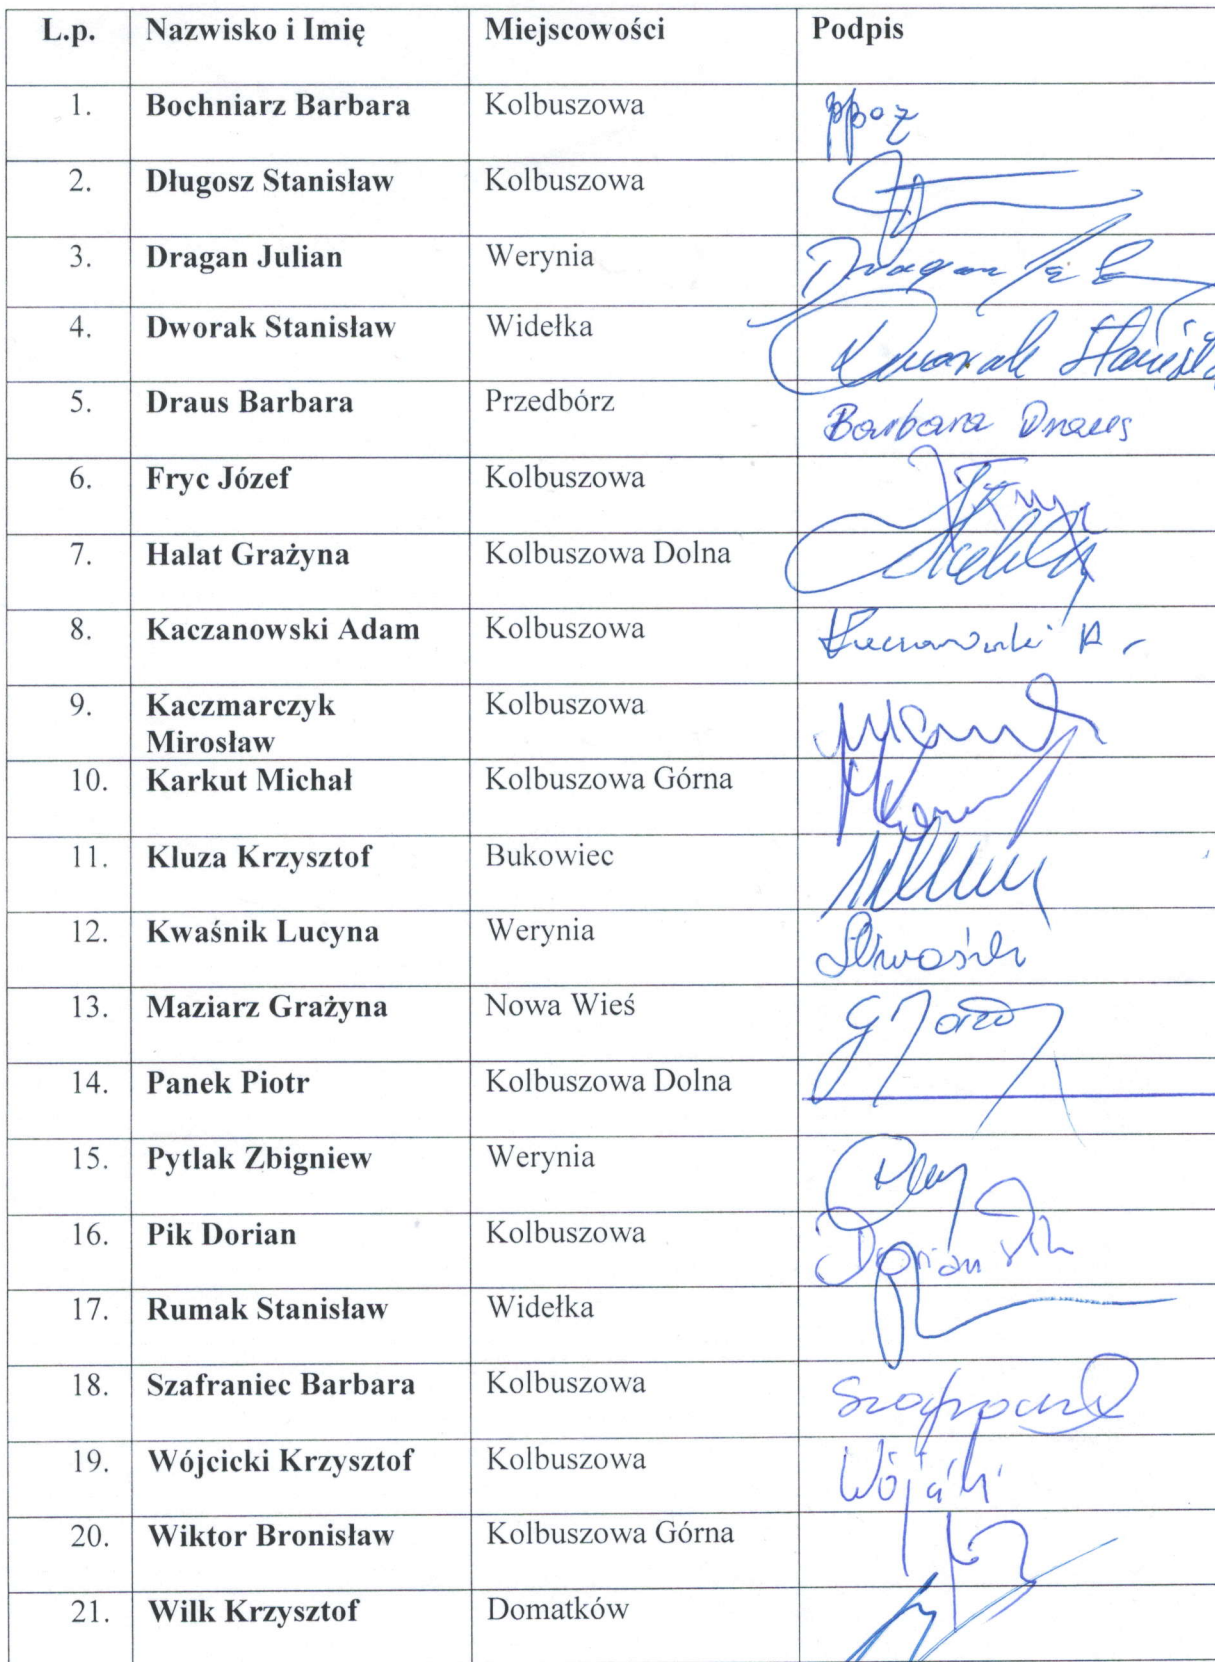 L.p. Nazwisko i Imię Miejscowości Podpis
1. Bochniarz Barbara Kolbuszowa
2. Długosz Stanisław Kolbuszowa
3. Dragan Julian Werynia Dragan
4. Dworak Stanisław Widełka Dworak
5. Draus Barbara Przedbórz Barbara Draus
6. Fryc Józef Kolbuszowa
7. Halat Grażyna Kolbuszowa Dolna
8. Kaczanowski Adam Kolbuszowa
9. Kaczmarczyk Kolbuszowa
Mirosław
10. Karkut Michał Kolbuszowa Górna
11. Kluza Krzysztof Bukowiec
12. Kwaśnik Lucyna Werynia
13. Maziarz Grażyna Nowa Wieś
14. Panek Piotr Kolbuszowa Dolna
15. Pytlak Zbigniew Werynia
16. Pik Dorian Kolbuszowa Dorian Pik
17. Rumak Stanisław Widełka
18. Szafraniec Barbara Kolbuszowa
19. Wójcicki Krzysztof Kolbuszowa
20. Wiktor Bronisław Kolbuszowa Górna
21. Wilk Krzysztof Domatków